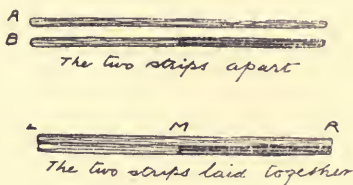 A
B
The two strips apart
L M R
The two strips laid together